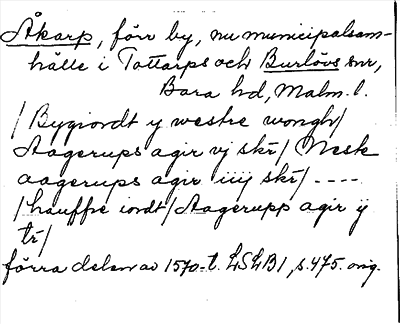 Åkarp, förr by, nu municipalsam-
hälle i Tottarps och Burlövs snr,
Bara hd, Malm. l.
/Bygiordt y westre wongh/
Aagerups agir vj skr/ Mesk
aagerups agir iiij skr/ ----
/hauffre iordt/ Aagerupp agir ij
tr/
förra delen av 1570-t. LSLB1, s. 475. orig.